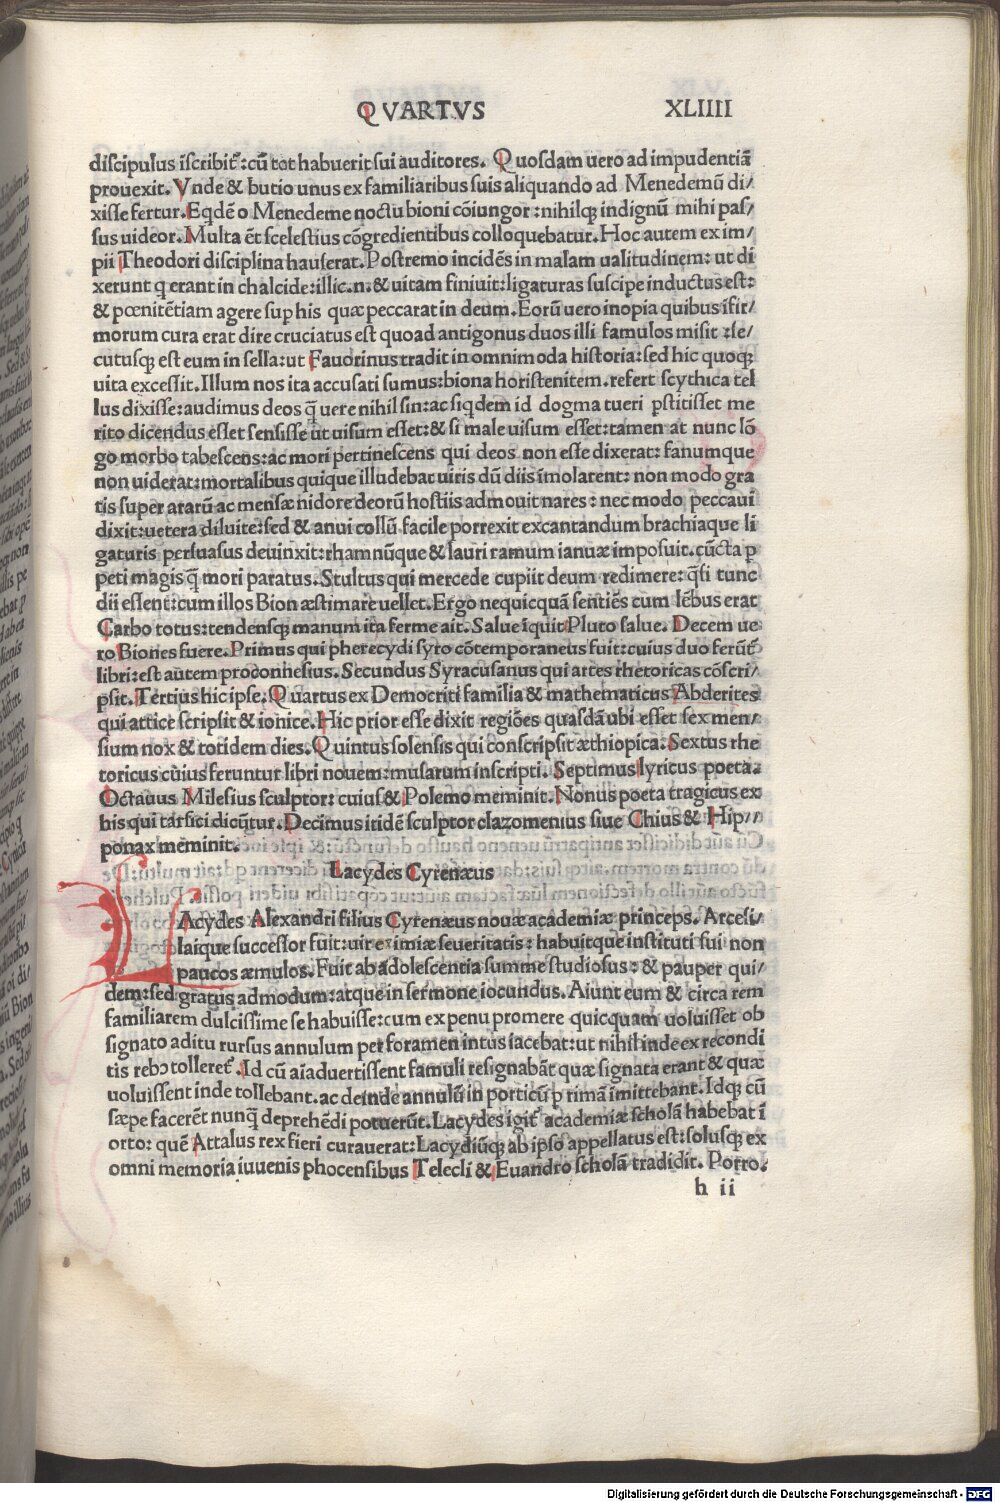 QVARTVS XLIIII
discipulus īscribit᷑: cū tot habuerit sui auditores. Quosdam uero ad impudentiā
prouexit. Vnde & butio unus ex familiaribus suis aliquando ad Menedemū di/
xisse fertur. Eqdē o Menedeme noctu bioni cōiungor: nihilqꝫ indignū mihi pas/
sus uideor. Multa ēt scelestius cōgredientibus colloquebatur. Hoc autem ex im/
pii Theodori disciplina hauserat. Postremo incidēs in malam ualitudinem: ut di
xerunt q erant in chalcide: illic .n. & uitam finiuit: ligaturas suscipe inductus est:
& pœnitētiam agere sup his quæ peccarat in deum. Eorū uero inopia quibus īfir/
morum cura erat dire cruciatus est quoad antigonus duos illi famulos misit: se/
cutusqꝫ est eum in sella: ut Fauorinus tradit in omnimoda historia: sed hic quoqꝫ
uita excessit. Illum nos ita accusati sumus: biona horistenitem. refert scythica tel
lus dixisse: audimus deos q̄ uere nihil sin: ac siqdem id dogma tueri pstitisset me
rito dicendus esset sensisse ut uisum esset: & si male uisum esset: tamen at nunc lō
go morbo tabescens: ac mori pertinescens qui deos non esse dixerat: fanumque
non uiderat: mortalibus quique illudebat uiris dū diis īmolarent: non modo gra
tis super ararū ac mensæ nidore deorū hostiis admouit nares: nec modo peccaui
dixit: uetera diluite: sed & anui collū facile porrexit excantandum brachiaque li
gaturis persuasus deuinxit: rhamnūque & lauri ramum ianuæ imposuit. cūcta p
peti magis q̄ mori paratus. Stultus qui mercede cupiit deum redimere: q̄si tunc
dii essent: cum illos Bion æstimare uellet. Ergo nequicquā sentiēs cum lēbus erat
Carbo totus: tendensqꝫ manum ita ferme ait. Salue īquit Pluto salue. Decem ue
ro Biones fuere. Primus qui pherecydi syro cōtemporaneus fuit: cuius duo ferūt᷑
libri: est autem proconhesius. Secundus Syracusanus qui artes rhetoricas cōscri/
psit. Tertius hic ipse. Quartus ex Democriti familia & mathematicus Abderites
qui attice scripsit & ionice. Hic prior esse dixit regiōes quasdā ubi esset sex men/
sium nox & totidem dies. Quintus solensis qui conscripsit æthiopica. Sextus rhe
toricus cuius feruntur libri nouem: musarum inscripti. Septimus lyricus poeta.
Octauus Milesius sculptor: cuius & Polemo meminit. Nonus poeta tragicus ex
his qui tarsici dicūtur. Decimus itidē sculptor clazomenius siue Chius & Hip/
ponax meminit.
Lacydes Cyrenæus
LAcydes Alexandri filius Cyrenæus nouæ academiæ princeps. Arcesi/
laique successor fuit: uir eximiæ seueritatis: habuitque instituti sui non
paucos æmulos. Fuit ab adolescentia summe studiosus: & pauper qui/
dem: sed gratus admodum: atque in sermone iocundus. Aiunt eum & circa rem
familiarem dulcissime se habuisse: cum ex penu promere quicquam uoluisset ob
signato aditu rursus annulum per foramen intus iacebat: ut nihil inde ex recondi
tis rebꝰ tolleret᷑. Id cū aiaduertissent famuli resignabāt quæ signata erant & quæ
uoluissent inde tollebant. ac deinde annulū in porticū p rimā īmittebant. Idqꝫ cū
sæpe facerēt nunq̄ deprehēdi potuerūt. Lacydes igit᷑ academiæ scholā habebat ī
orto: quē Attalus rex fieri curauerat: Lacydiūqꝫ ab ipso appellatus est: solusqꝫ ex
omni memoria iuuenis phocensibus Telecli & Euandro scholā tradidit. Porro.
h ii
Digitalisierung gefördert durch die Deutsche Forschungsgemeinschaft - DFG